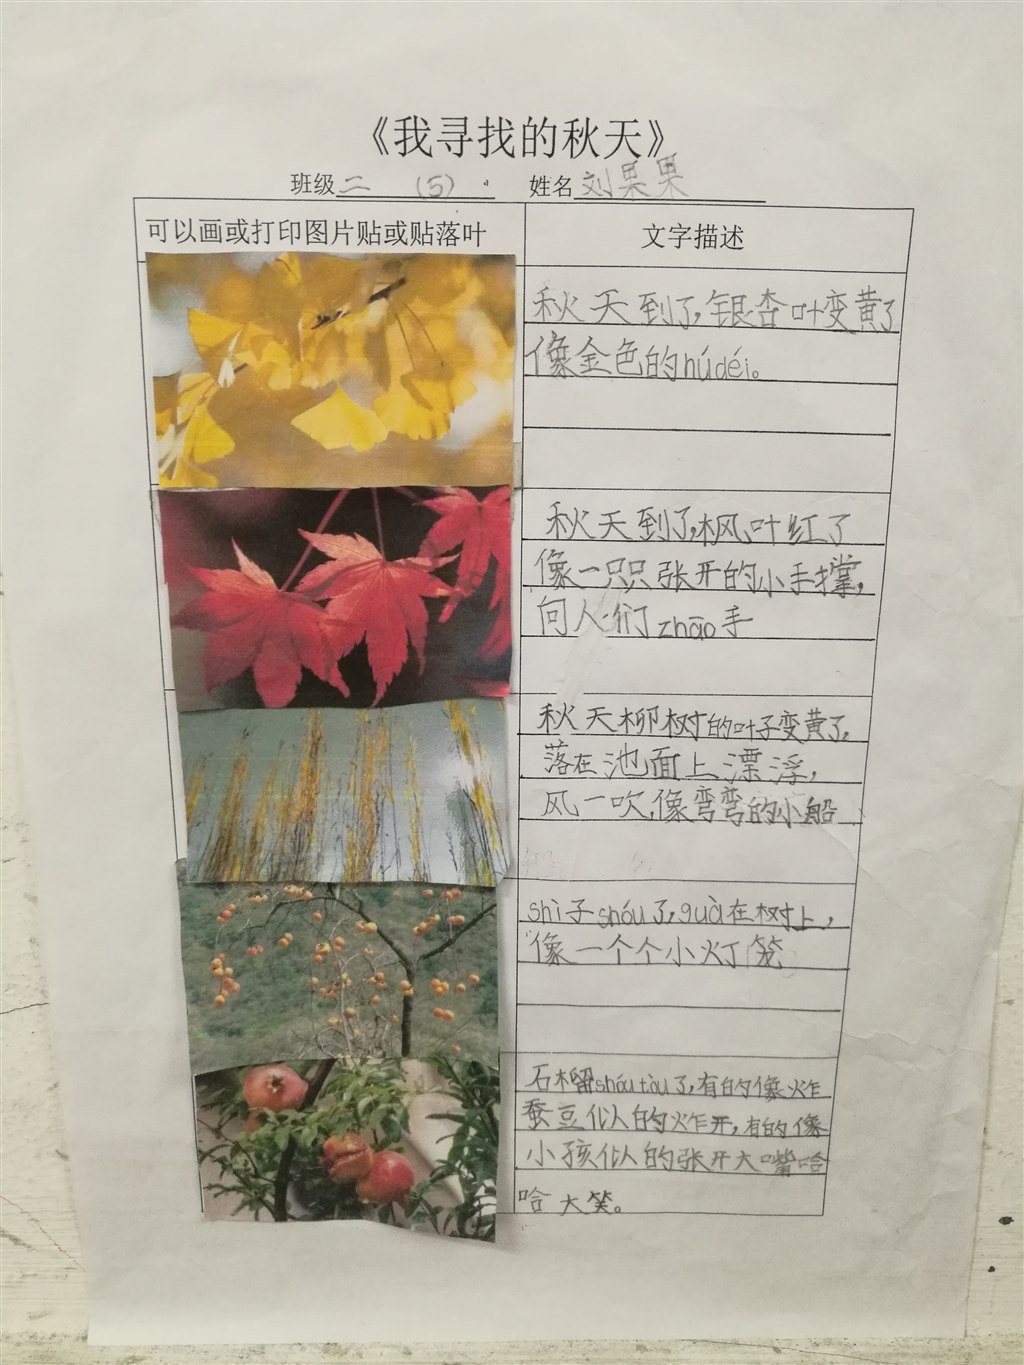 《我寻找的秋天》
班级 二 （5） 姓名 刘果果
可以画或打印图片贴或贴落叶
文字描述
秋天到了,银杏叶变黄了
像金色的húdéi。
秋天到了,枫叶红了
像一只只张开的小手掌,
向人们zhāo手
秋天柳树的叶子变黄了,
落在池面上漂浮,
风一吹,像弯弯的小船
shì子shóu了,guà在树上,
像一个个小灯笼
石榴shóu tòu了,有的像炸
蚕豆似的炸开,有的像
小孩似的张开大嘴哈
哈大笑。